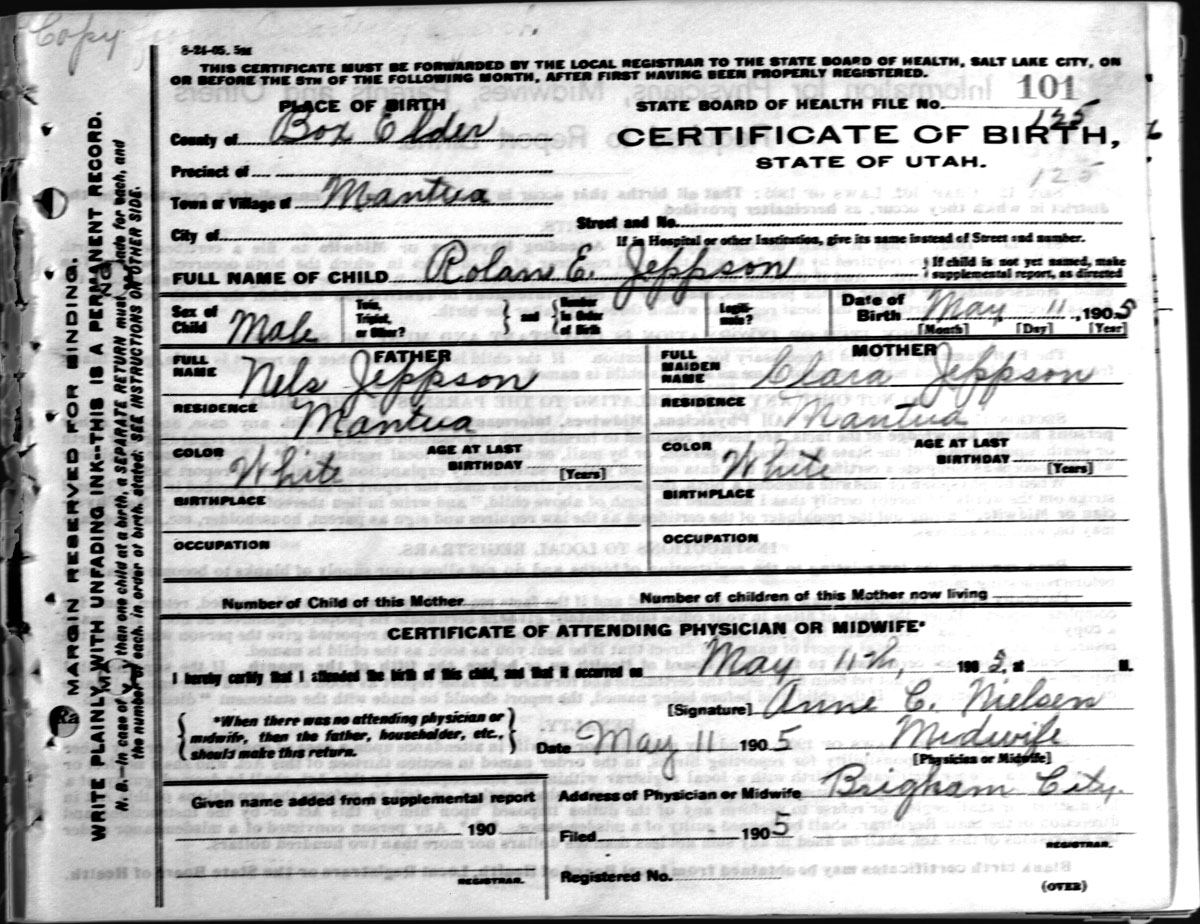 Copy
8-24-05. 5M
THIS CERTIFICATE MUST BE FORWARDED BY THE LOCAL REGISTRAR TO THE STATE BOARD OF HEALTH, SALT LAKE CITY, ON
OR BEFORE THE 5TH OF THE FOLLOWING MONTH, AFTER FIRST HAVING BEEN PROPERLY REGISTERED.
PLACE OF BIRTH
STATE BOARD OF HEALTH FILE NO. 101
125
County of Box Elder
CERTIFICATE OF BIRTH,
STATE OF UTAH.
125
Precinct of
Town or Village of Mantua
Street and No.
City of
If in Hospital or other Institution, give its name instead of Street and number.
FULL NAME OF CHILD Rolane E. Jeppson } If child is not yet named, make
supplemental report, as directed
Sex of Child Male
Twin, Triplet, or Other? } and { Number in Order of Birth
Legitimate?
Date of Birth May 11, 1905
[Month] [Day] [Year]
FATHER
FULL NAME Nels Jeppson
MOTHER
FULL MAIDEN NAME Clara Jeppson
RESIDENCE Mantua
RESIDENCE Mantua
COLOR White AGE AT LAST BIRTHDAY [Years]
COLOR White AGE AT LAST BIRTHDAY [Years]
BIRTHPLACE
BIRTHPLACE
OCCUPATION
OCCUPATION
Number of Child of this Mother
Number of children of this Mother now living
CERTIFICATE OF ATTENDING PHYSICIAN OR MIDWIFE*
I hereby certify that I attended the birth of this child, and that it occurred on May 11th, 1905, at M.
{ *When there was no attending physician or
midwife, then the father, householder, etc.,
should make this return. }
[Signature] Anne C. Nielsen
Date May 11 1905 Midwife
[Physician or Midwife]
Given name added from supplemental report
190
REGISTRAR.
Address of Physician or Midwife Brigham City.
Filed 1905
REGISTRAR.
Registered No.
(OVER)
MARGIN RESERVED FOR BINDING.
WRITE PLAINLY WITH UNFADING INK--THIS IS A PERMANENT RECORD.
N. B.--In case of more than one child at a birth, a SEPARATE RETURN must be made for each, and
the number of each, in order of birth, stated. SEE INSTRUCTIONS ON OTHER SIDE.